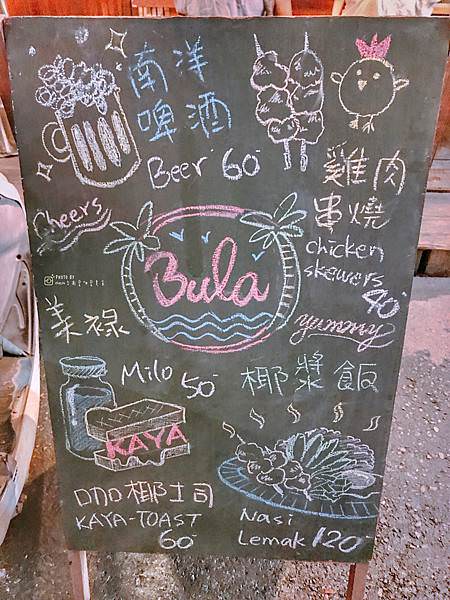 南洋
啤酒
Beer 60
Cheers
雞肉
串燒
chicken
skewers
40
yummy
Bula
PHOTO BY
美祿
Milo 50
椰漿飯
KAYA
咖椰土司
KAYA-TOAST
60
Nasi
Lemak 120